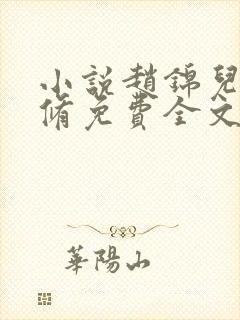 小說趙錦兒
脩免費全文
華陽山